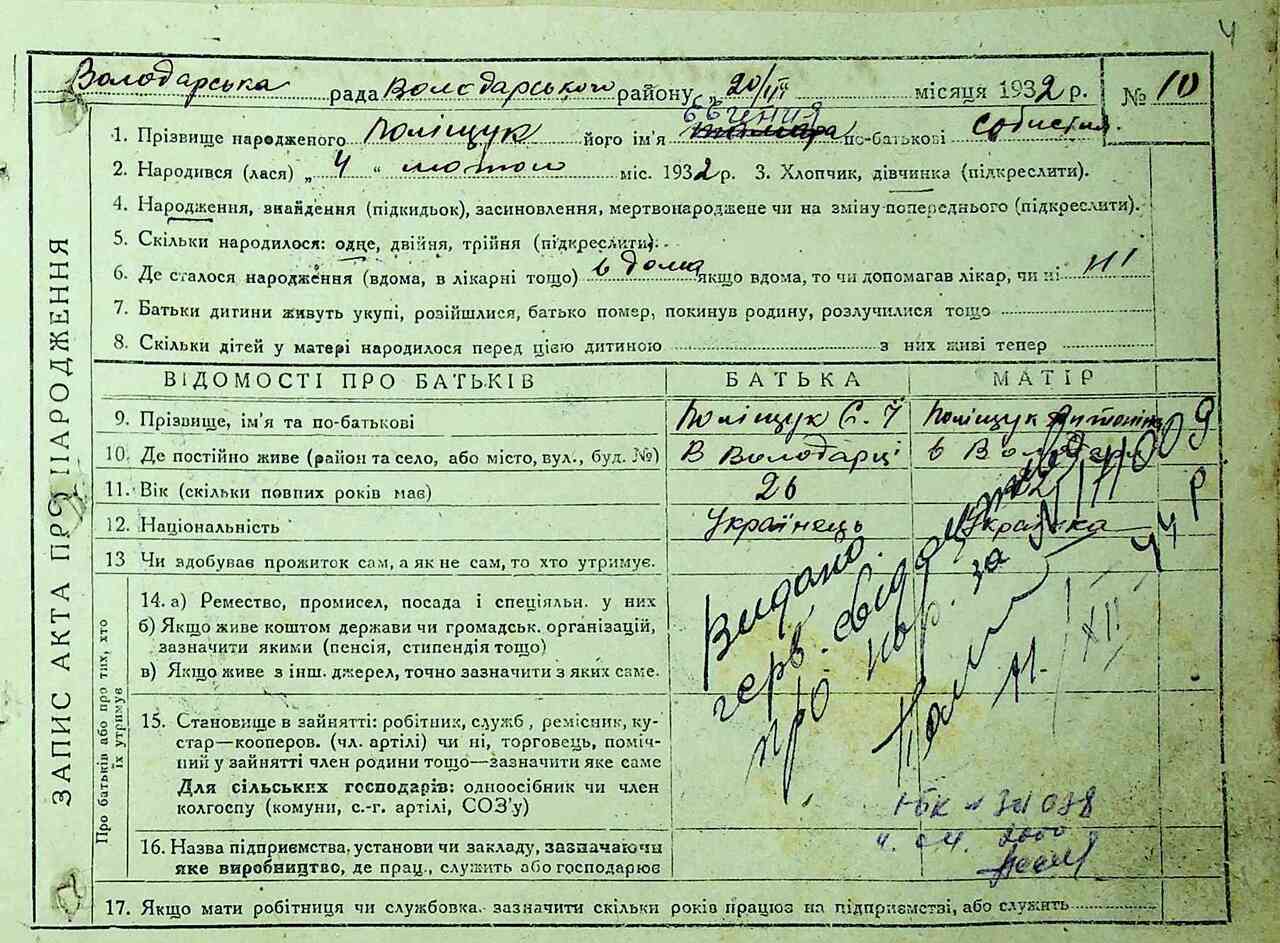 4
Володарська рада Володарського району „ 20/III місяця 1932 р. № 10
Євгения
1. Прізвище народженого Поліщук його ім'я по-батькові
2. Народився (лася) „ 4 “ лютого міс. 1932 р. 3. Хлопчик, дівчинка (підкреслити).
4. Народження, знайдення (підкидьок), засиновлення, мертвонароджене чи на зміну попереднього (підкреслити).
5. Скільки народилося: одне, двійня, трійня (підкреслити).
6. Де сталося народження (вдома, в лікарні тощо) в дома якщо вдома, то чи допомагав лікар, чи ні ні
7. Батьки дитини живуть укупі, розійшлися, батько помер, покинув родину, розлучилися тощо
8. Скільки дітей у матері народилося перед цією дитиною з них живі тепер
ЗАПИС АКТА ПРО НАРОДЖЕННЯ
ВІДОМОСТІ ПРО БАТЬКІВ БАТЬКА МАТІР
9. Прізвище, ім'я та по-батькові Поліщук Є. Й Поліщук Антоніна
10. Де постійно живе (район та село, або місто, вул., буд. №) В Володарці в Володарці
11. Вік (скільки повних років має) 26
12. Національність Українець Українка
13 Чи здобуває прожиток сам, а як не сам, то хто утримує.
Про батьків або про тих, хто їх утримує
14. а) Ремество, промисел, посада і спеціяльн. у них
б) Якщо живе коштом держави чи громадськ. організацій,
зазначити якими (пенсія, стипендія тощо)
в) Якщо живе з інш. джерел, точно зазначити з яких саме.
15. Становище в зайнятті: робітник, служб, ремісник, ку-
стар—кооперов. (чл. артілі) чи ні, торговець, поміч-
ний у зайнятті член родини тощо—зазначити яке саме
Для сільських господарів: одноосібник чи член
колгоспу (комуни, с.-г. артілі, СОЗ'у)
16. Назва підприємства, установи чи закладу, зазначаючи
яке виробництво, де прац., служить або господарює
17. Якщо мати робітниця чи службовка зазначити скільки років працює на підприємстві, або служить
Видано
герб. свідоцтво
про нар. за №
44 р
11. XII
4. 04. 2000